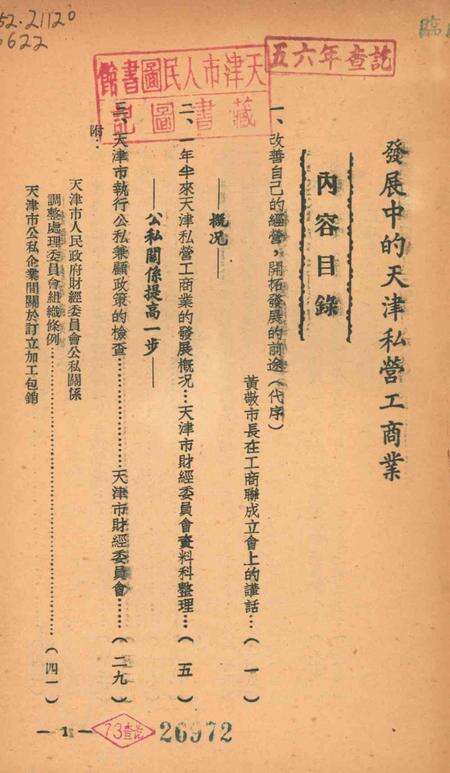 52.21120
6622
天津市人民圖書館
藏書圖記
五六年查訖
發展中的天津私營工商業
內容目錄
一、改善自己的經營，開拓發展的前途（代序）
黃敬市長在工商聯成立會上的講話…（一）
——概況——
二、一年半來天津私營工商業的發展概況…天津市財經委員會資料科整理…（五）
——公私關係提高一步——
三、天津市執行公私兼顧政策的檢查……………天津市財經委員會……（二九）
附：
天津市人民政府財經委員會公私關係
調整處理委員會組織條例……………………………………（四一）
天津市公私企業間關於訂立加工包銷
— 1 —
73查訖
26972